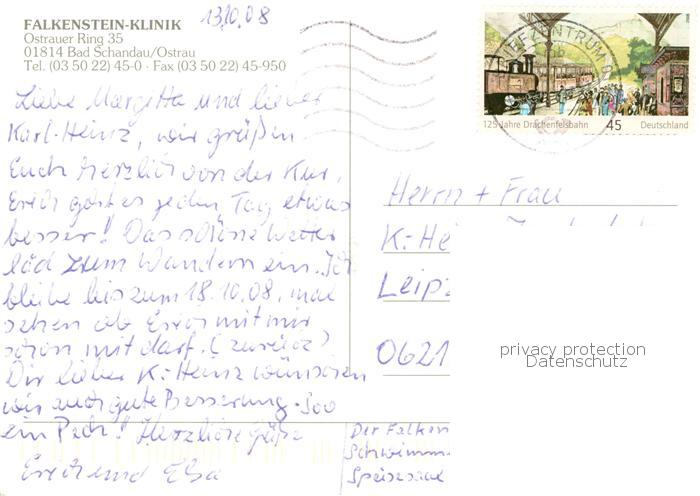 13.10.08
FALKENSTEIN-KLINIK
Ostrauer Ring 35
01814 Bad Schandau/Ostrau
Tel. (03 50 22) 45-0 · Fax (03 50 22) 45-950
BRIEFZENTRUM 01
125 Jahre Drachenfelsbahn 45 Deutschland
Liebe Margitta und lieber
Karl-Heinz, wir grüßen
Euch herzlich von der Kur,
Erich geht es jeden Tag etwas
besser! Das schöne Wetter
läd zum Wandern ein. Ich
bleibe bis zum 18.10.08, mal
sehen ob Erich mit mir
schon mit darf. (zurück?)
Dir lieber K.-Heinz wünschen
wir auch gute Besserung. Soo
ein Pech! Herzliche Grüße
Erich und Elsa
Herrn + Frau
K.-He
Leipz
0621
privacy protection
Datenschutz
Der Falken
Schwimm
Speisesaal